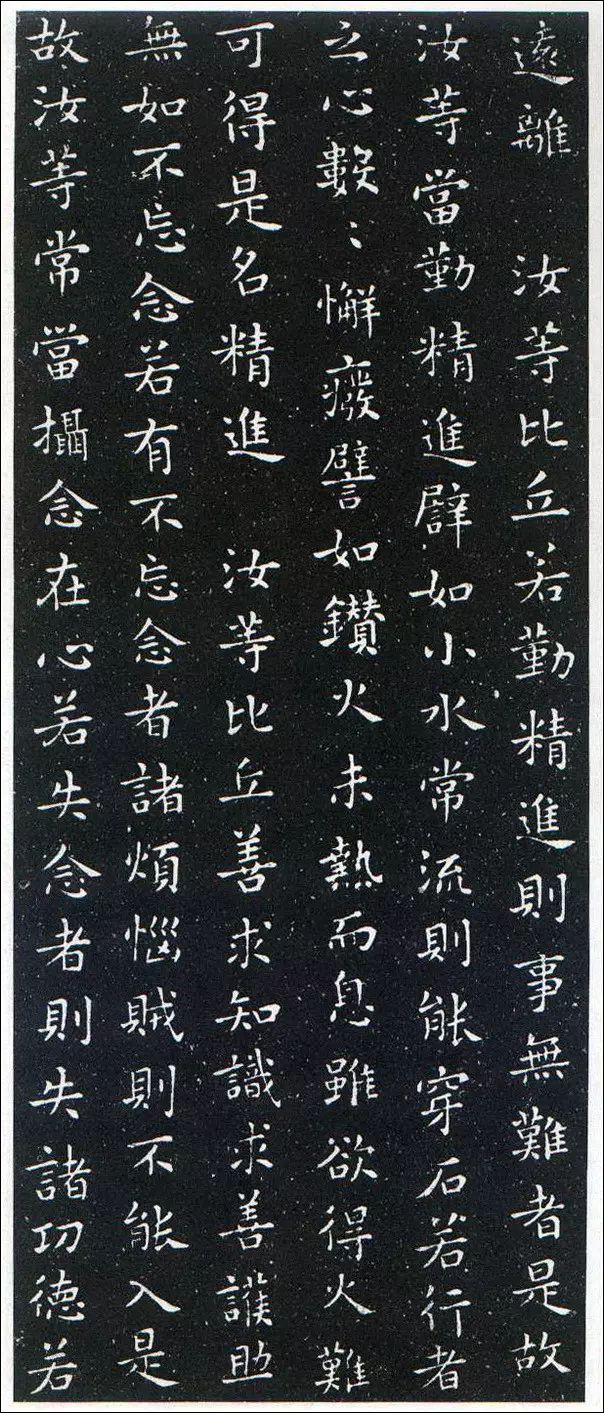 遠離　汝等比丘若勤精進則事無難者是故
汝等當勤精進譬如小水常流則能穿石若行者
之心數〻懈癈譬如鑚火未熱而息雖欲得火難
可得是名精進　汝等比丘善求知識求善護助
無如不忘念若有不忘念者諸煩惱賊則不能入是
故汝等常當攝念在心若失念者則失諸功德若